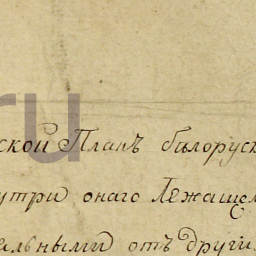 ской Планъ билорус
утри онаго Лежащем
альными отъ други
ru